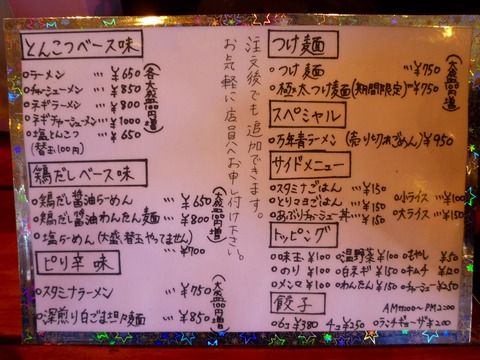 とんこつベース味
ラーメン … ¥650
チャーシューメン … ¥850
ネギラーメン … ¥800
ネギチャーシューメン … ¥1000
塩とんこつ … ¥650
(替玉100円)
(各大盛100円増)
鶏だしベース味
鶏だし醤油らーめん ¥650
鶏だし醤油わんたん麺 … ¥800
塩らーめん(大盛、替玉やってません)
¥700
(大盛100円増)
ピリ辛味
スタミナラーメン … ¥750
深煎り白ごま坦々麺 … ¥850
(大盛100円増)
注文後でも追加できます。
お気軽に店員へお申し付け下さい。
つけ麺
つけ麺 … ¥750
極太つけ麺(期間限定) ¥750
(大盛100円増)
スペシャル
万年青ラーメン(売り切れごめん) ¥950
サイドメニュー
スタミナごはん … ¥150
とりマヨごはん … ¥150 小ライス … ¥100
あぶりチャーシュー丼 … ¥150 大ライス … ¥150
トッピング
味玉 ¥100 温野菜 ¥100 もやし ¥50
のり ¥100 白ネギ ¥150 キムチ ¥100
メンマ ¥100 わんたん ¥150 チャーシュー ¥250
餃子
6コ ¥380 4コ ¥250 ランチギョーザ ¥200